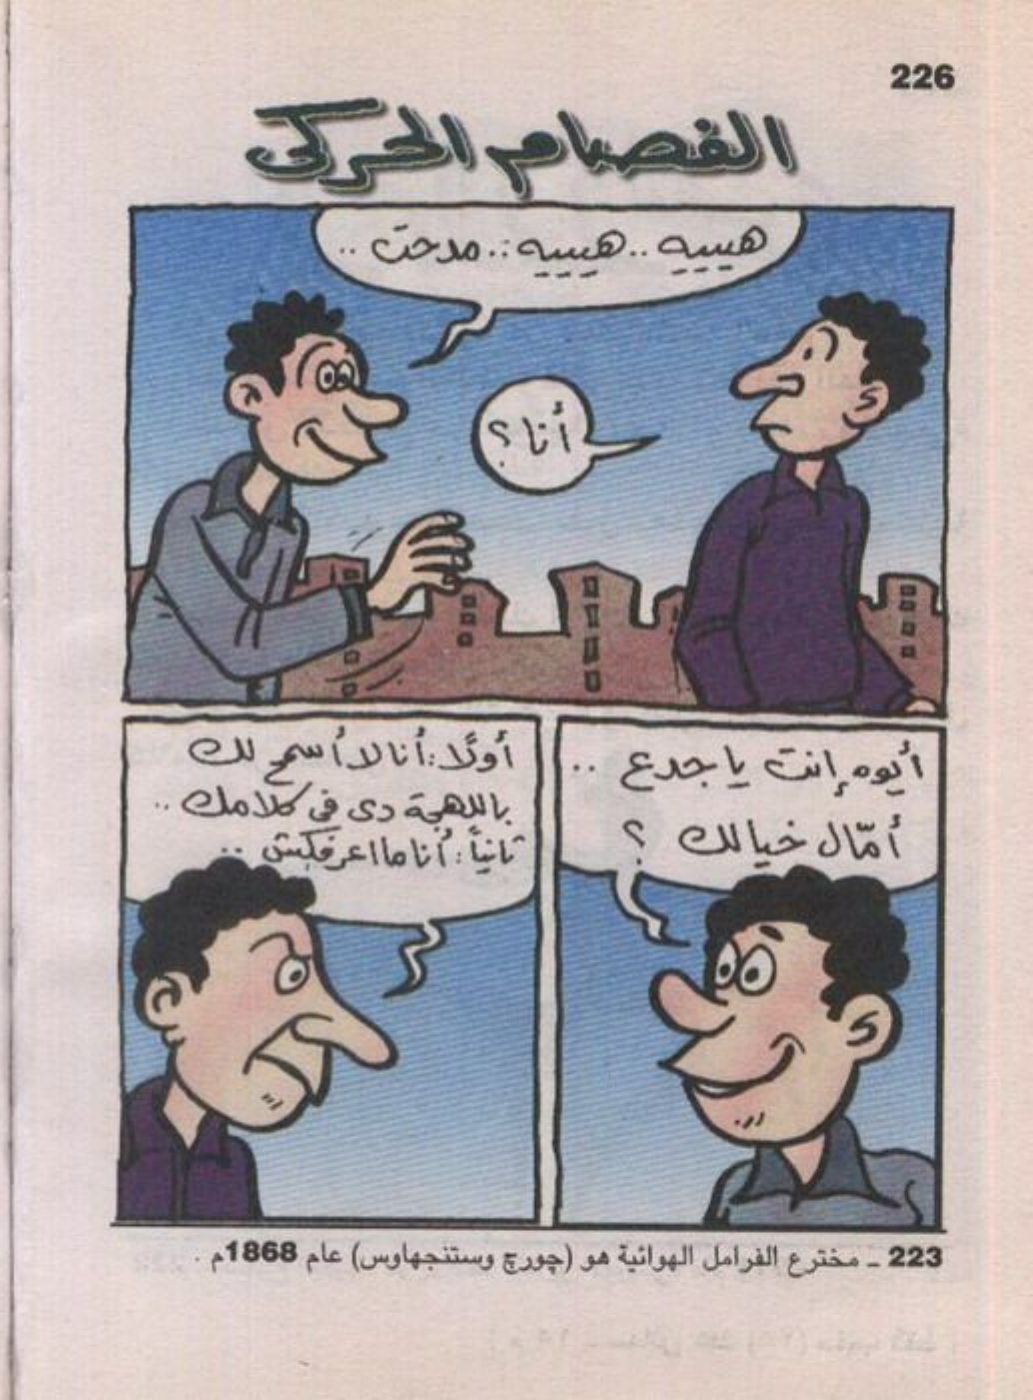 226
الفصام الحركى
هييييه .. هييييه .. مدحت ..
أنا ؟
أيوه إنت يا جدع ..
أمّال خيالك ؟
أولًا : أنا لا أسمح لك
باللهجة دى فى كلامك ..
ثانياً : أنا ما اعرفكش ..
223 ــ مخترع الفرامل الهوائية هو (چورچ وستنجهاوس) عام 1868م .